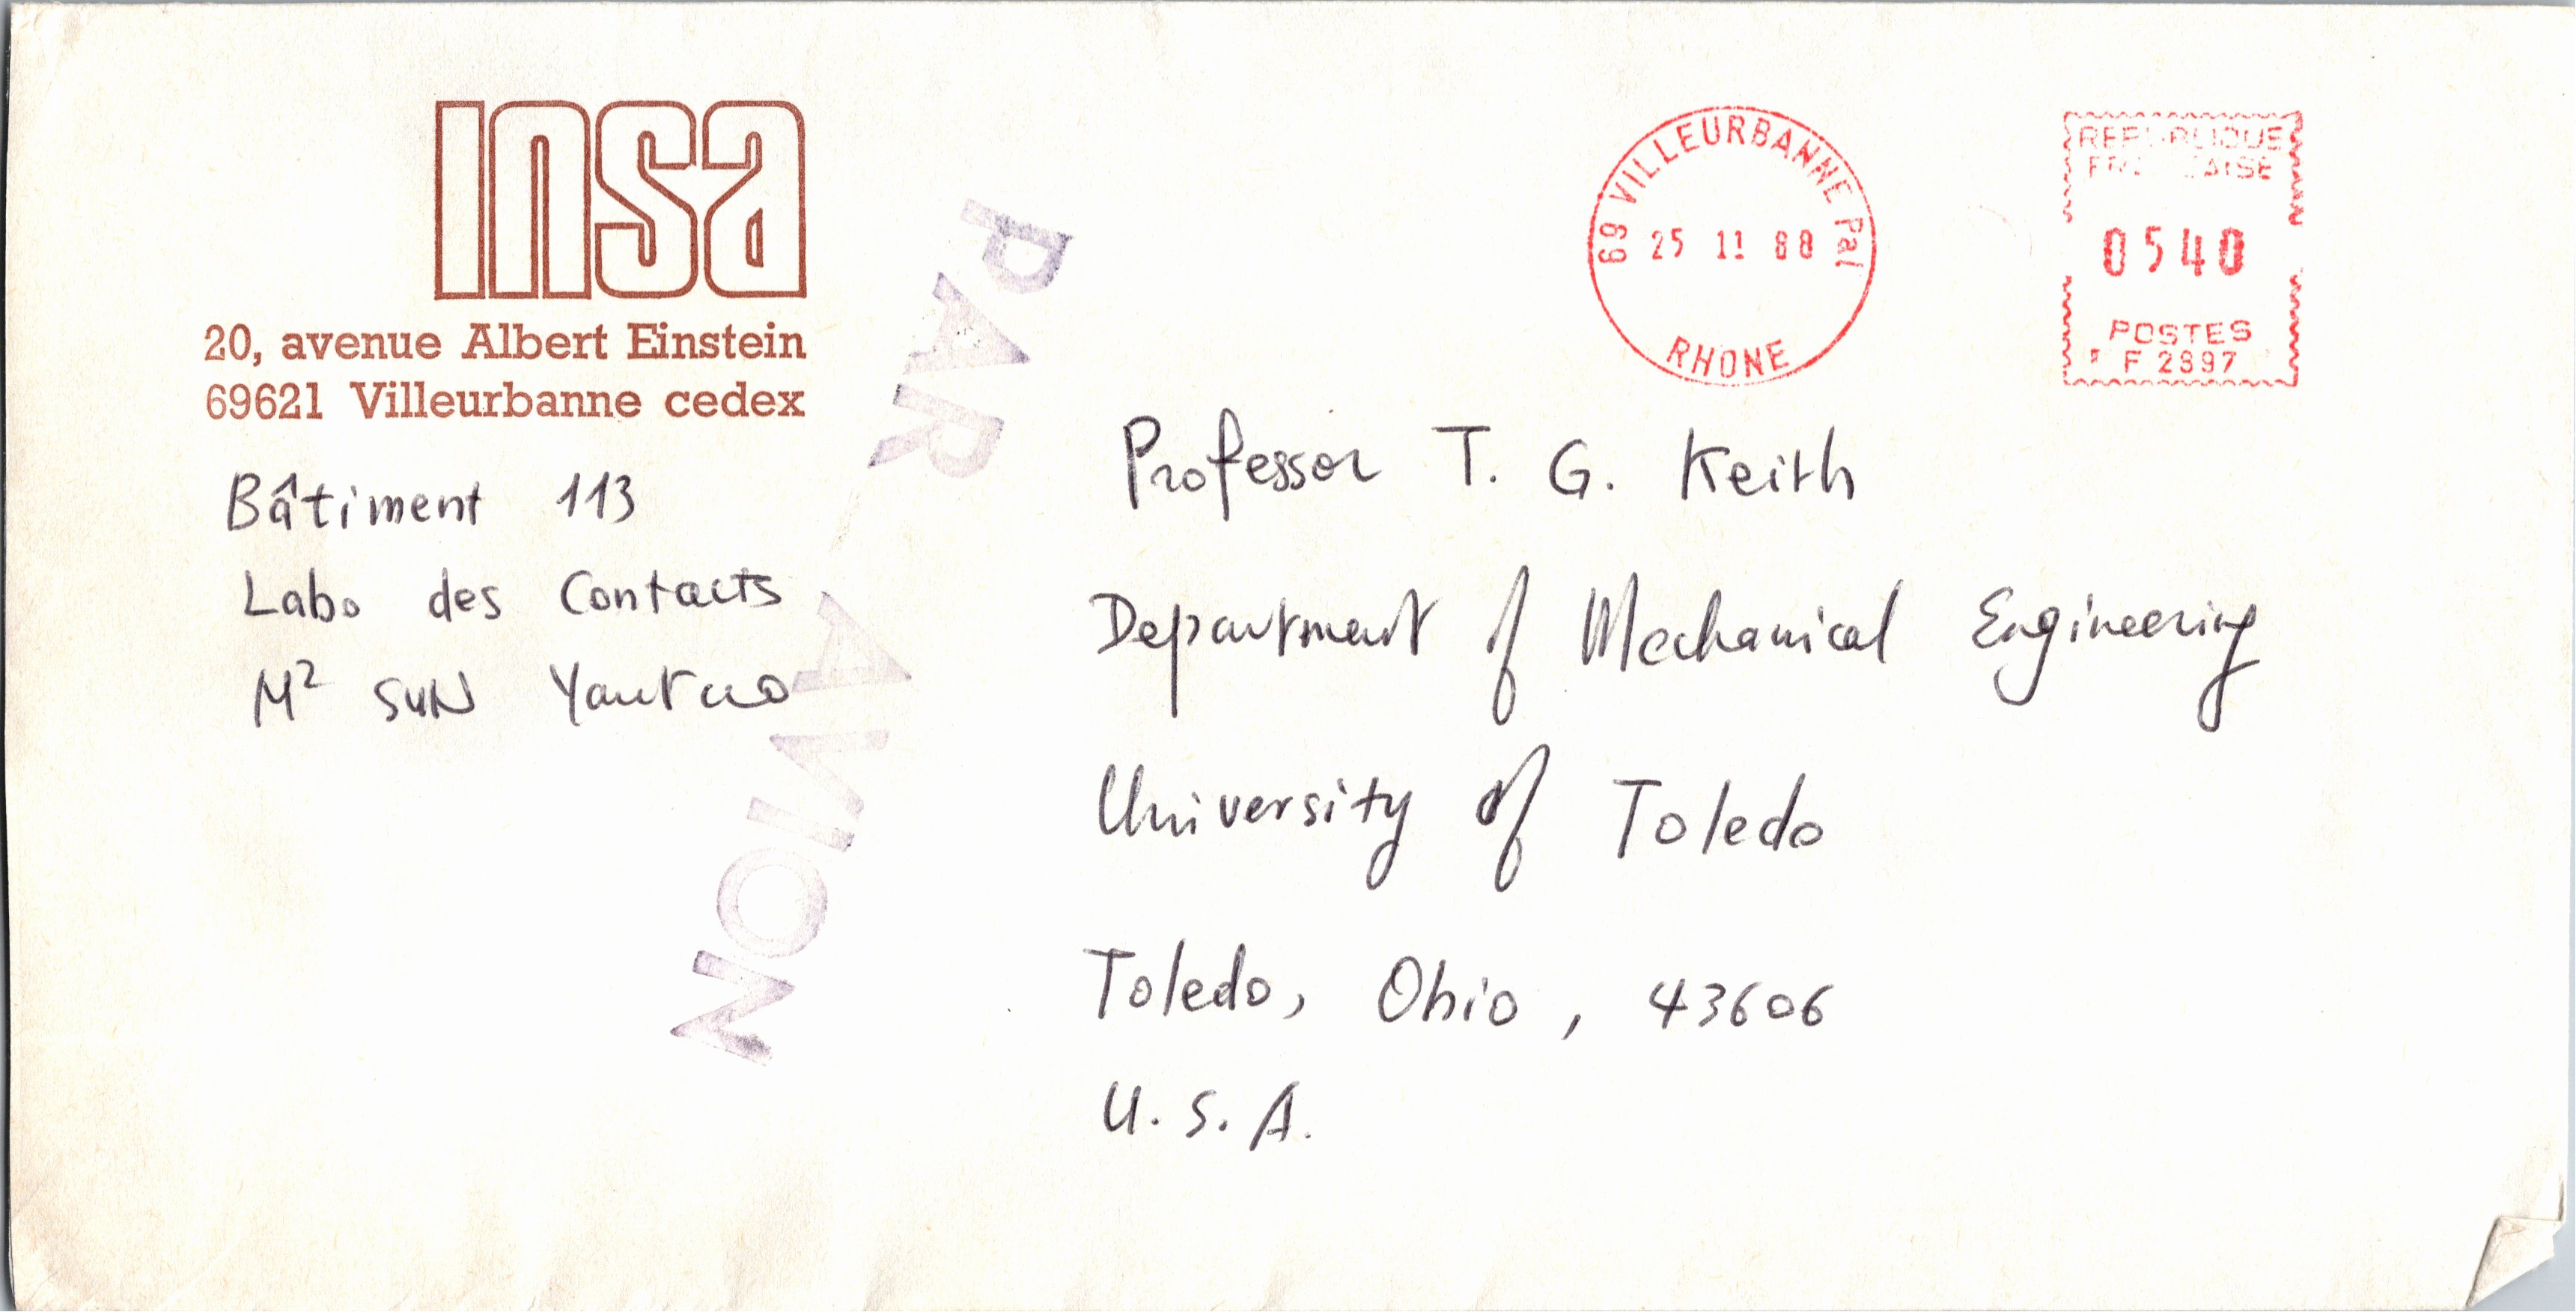 insa
20, avenue Albert Einstein
69621 Villeurbanne cedex
Bâtiment 113
Labo des Contacts
SUN
PAR AVION
69 VILLEURBANNE Pal
25 11 88
RHONE
REPUBLIQUE
FRANCAISE
0540
POSTES
F 2897
Professor T. G. Keith
Department of Mechanical Engineering
University of Toledo
Toledo, Ohio, 43606
U. S. A.